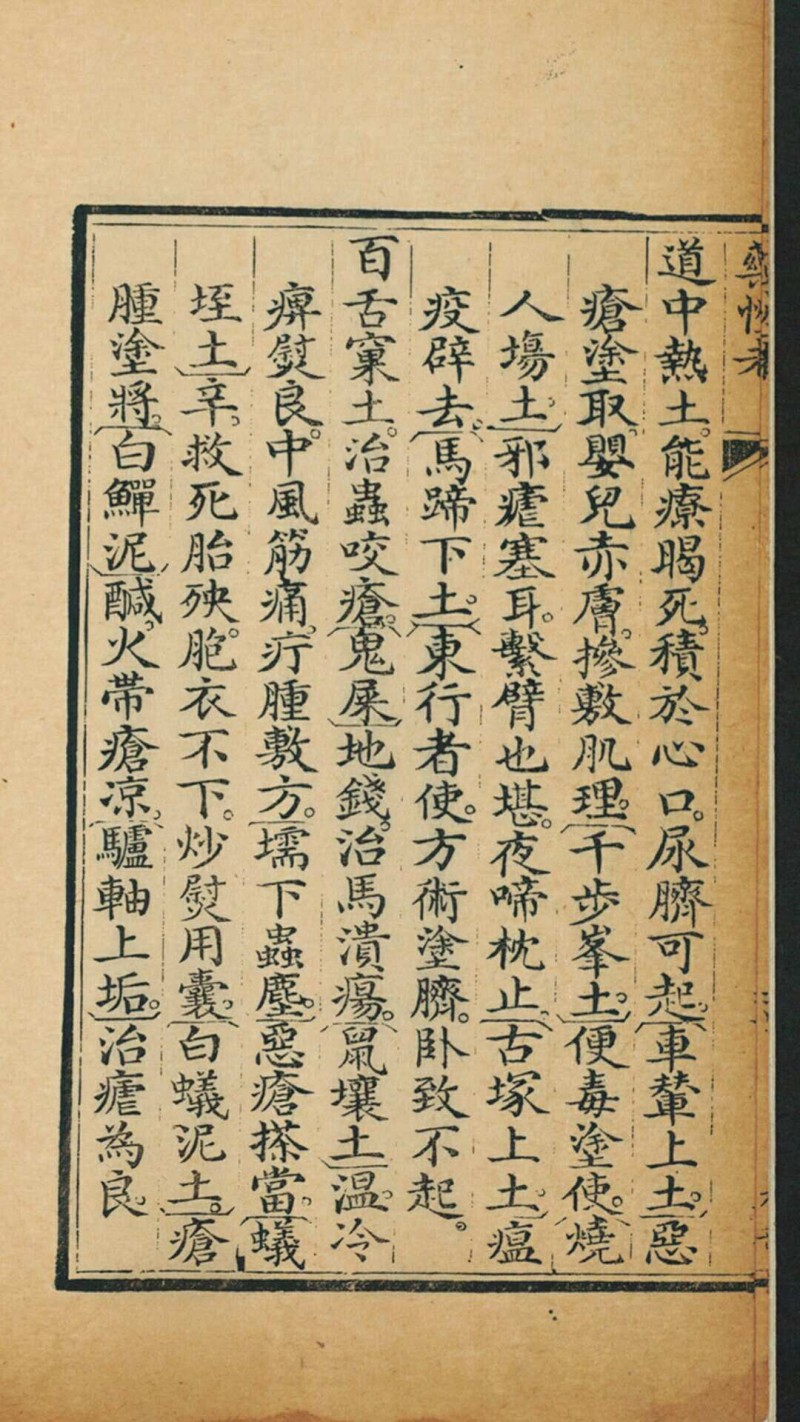 道中熱土。能療暍死。積於心口。尿臍可起。車輦上土。惡
瘡塗取。嬰兒赤膚。摻敷肌理。千步峯土。便毒塗使。燒
人塲土。邪瘧塞耳。繫臂也堪。夜啼枕止。古塚上土。瘟
疫辟去。馬蹄下土。東行者使。方術塗臍。卧致不起。
百舌窠土。治蟲咬瘡。鬼屎地錢。治馬潰瘍。鼠壤土溫。冷
痹熨良。中風筋痛。疔腫敷方。壖下蟲塵。惡瘡搽當。蟻
垤土辛。救死胎殃。胞衣不下。炒熨用囊。白蟻泥土。瘡
腫塗將。白鱓泥醎。火帶瘡凉。驢軸上垢。治瘧為良。